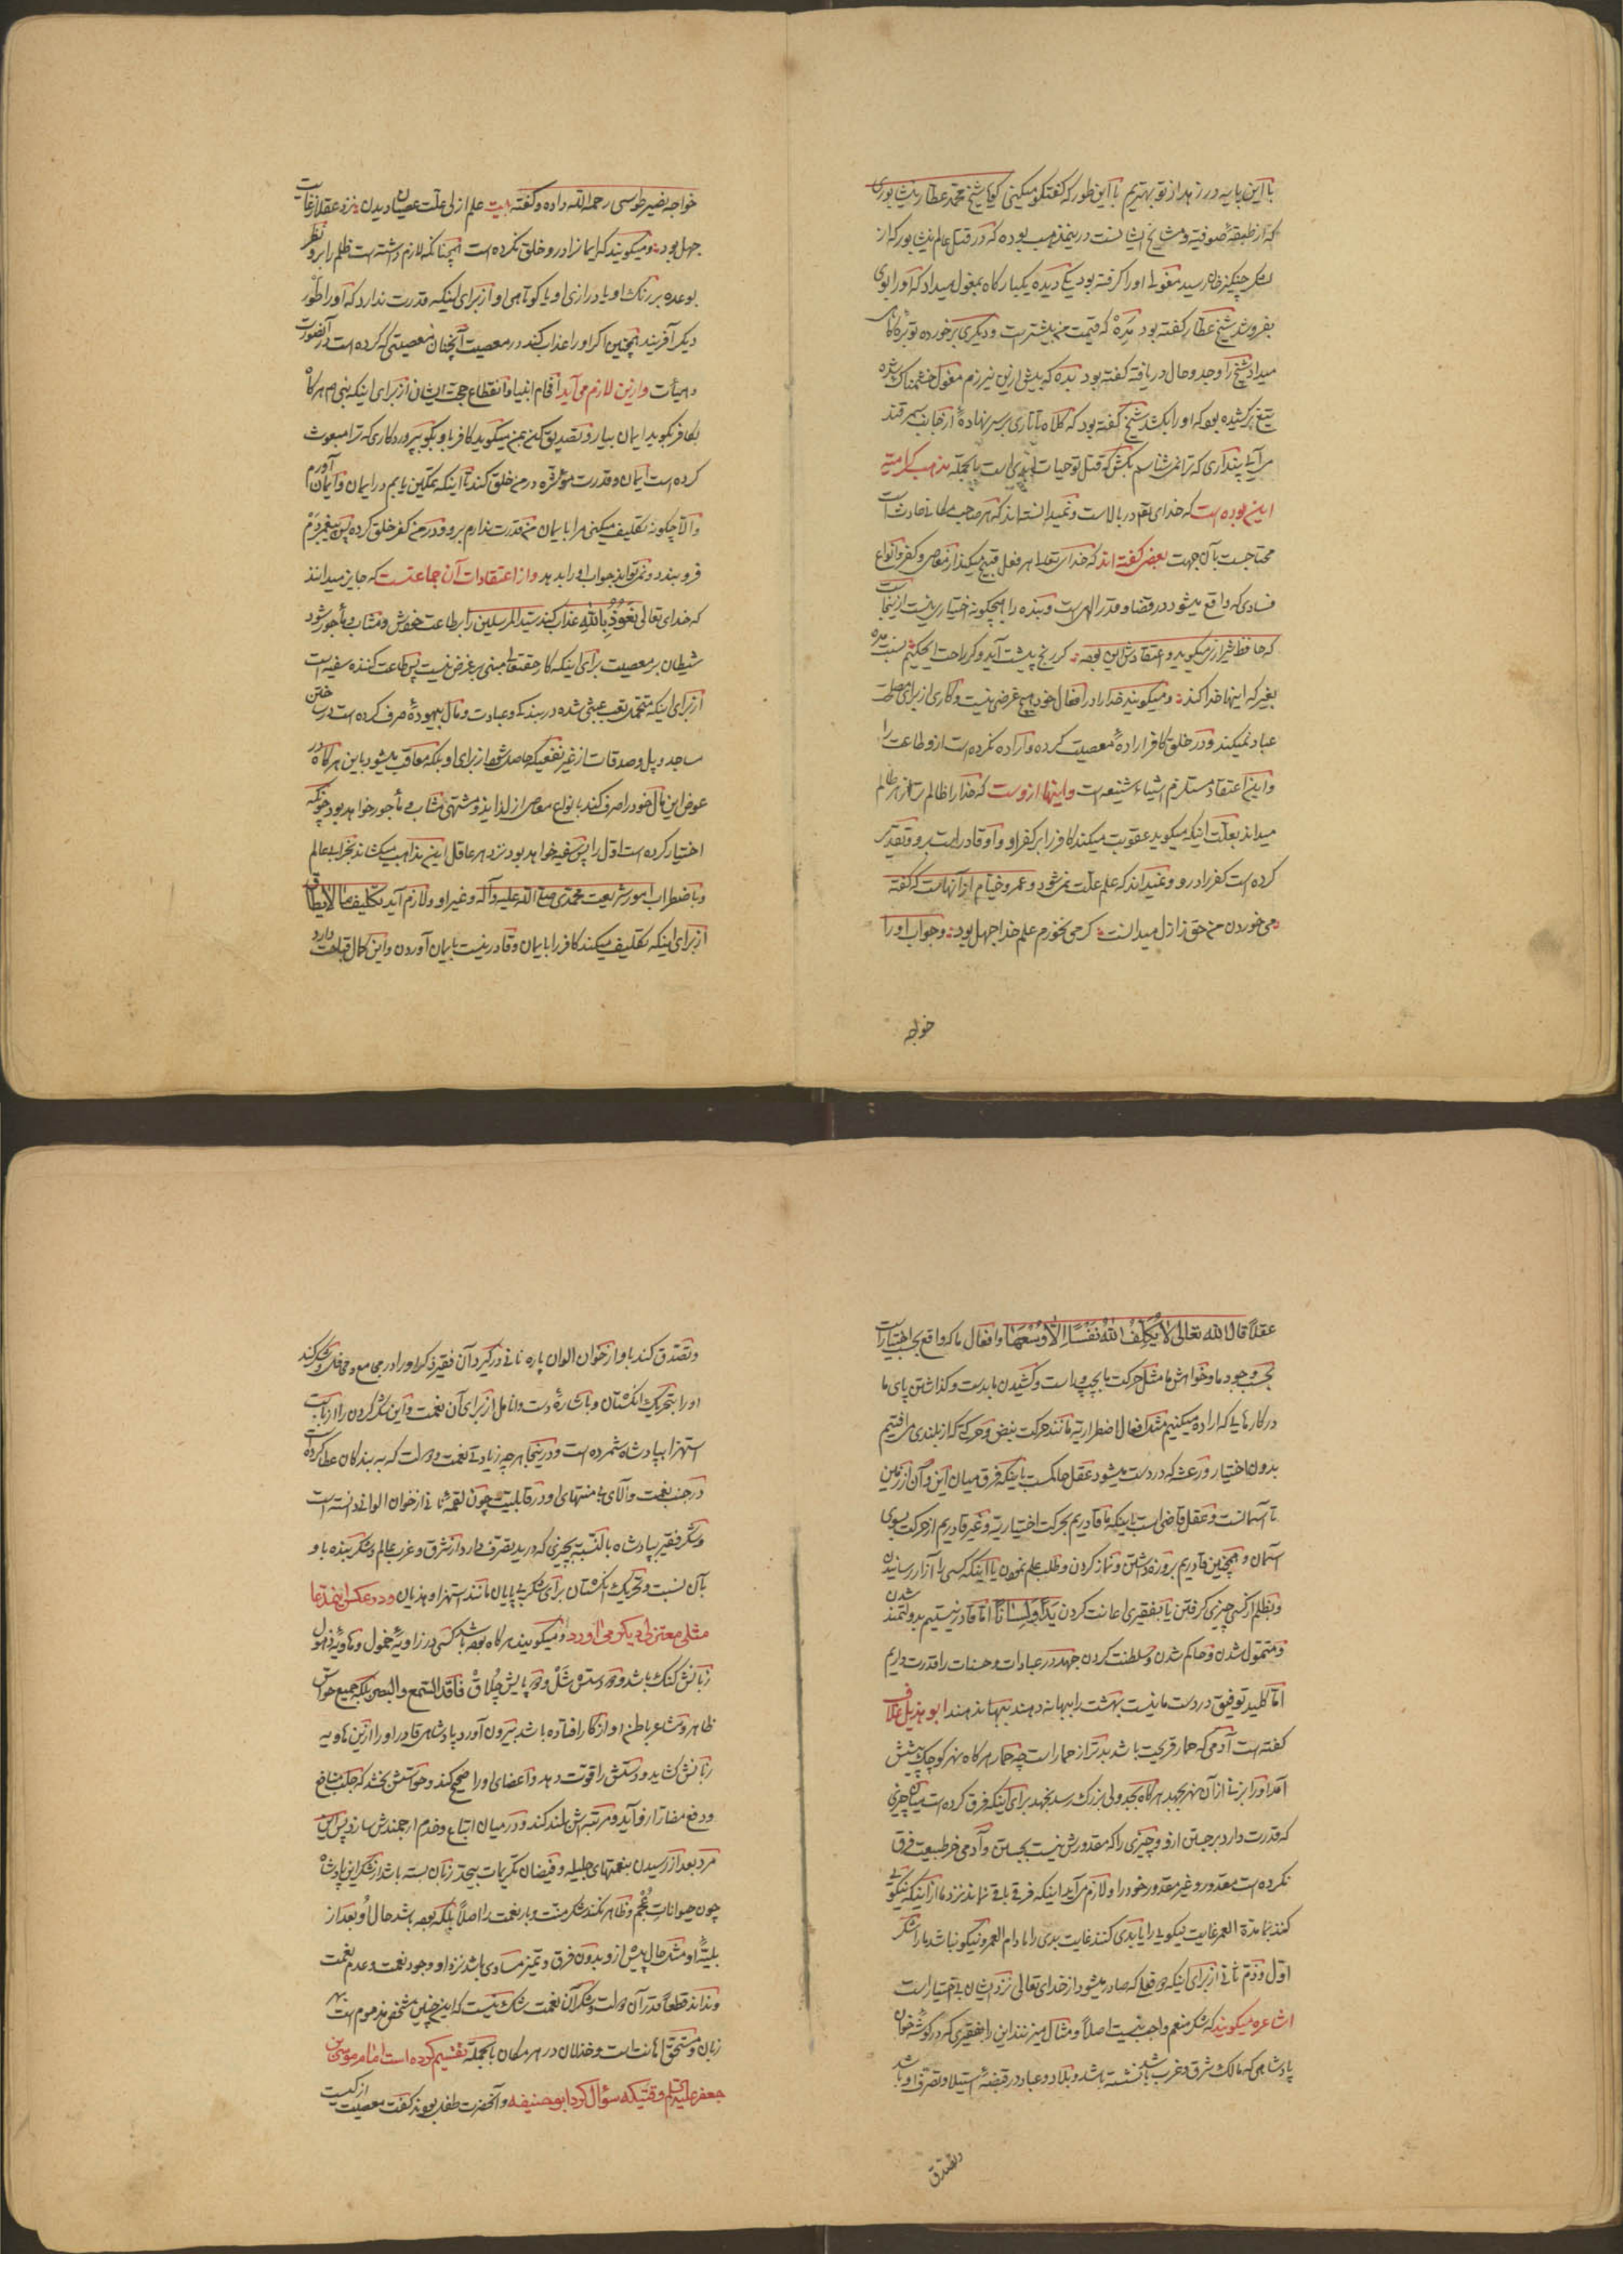 با این پایه در زهد از تو بهتریم با این طور که گفتگو میکنی گویا شیخ محمد عطار نیشابوری
که از طبقهٔ صوفیه و مشایخ ایشانست درینمذهب بوده که در قتل عالم نیشابور که از
لشکر چنگیز خان رسید مغولی او را گرفته بود یکی دیده یکبار کاه بمغول میداد که او را بوی
بفروشد شیخ عطار کفته بود مده که قیمت من بیشتر است و دیگری برخورده توبره کاه
میداد شیخ را وجد و حال دریافته کفته بود بده که بیش ازین نیرزم مغول خشمناک شده
تیغ برکشیده بود که او را بکشد شیخ کفته بود که کلاه تاتاری بر سر نهادهٔ از جانب سمرقند
می آیی پنداری که ترا نمی شناسم بکش که قتل تو حیات ابدی است بالجمله مذهب کرامیه
این بوده است که خدای تعالی در بالاست و نمیدانسته اند که هر صاحب مکانی حادث است
محتاجست بآن جهت بعضی کفته اند که خدای تعالی هر فعل قبیح میکند از معاصی و کفر و انواع
فسادی که واقع میشود در قضا و قدر الهی است و بنده را هیچگونه اختیاری نیست ازینجاست
که حافظ شیرازی میگوید و اعتقادش این بوده کر رنج پیشت آید و کر راحت ای حکیم نسبت مده
بغیر که اینها خدا کند و میگویند خدا را در افعال خود هیچ غرضی نیست و کاری از برای مصلحت
عباد نمیکند و در خلق کافر ارادهٔ معصیت کرده و اراده نکرده است ازو طاعت را
و این اعتقاد مستلزم اشیاء شنیعه است و اینها ازوست که خدا را ظالم تر از هر ظالم
میداند بعلت اینکه میگوید عقوبت میکند کافر را بر کفر او و او قادر است برو و تقدیر
کرده است کفر را درو و نمیداند که علم علت نمی شود و عمرو خیام از آنهاست که گفته
می خوردن من حق ز ازل میدانست کر می نخورم علم خدا جهل بود و جواب او را
خواجه
خواجه نصیر طوسی رحمه الله داده و کفته بیت علم ازلی علت عصیان دیدن نزد عقلا ز غایت
جهل بود و میگویند که ایمان را درو خلق نکرده است همچنانکه لازم داشته است ظلم را برو نظر
بوعده بر رنک او یا درازی او یا کوتاهی او از برای اینکه قدرت ندارد که او را طور
دیگر آفریند همچنین اگر او را عذاب کند در معصیت آنچنان معصیتی که کرده است در آنصورت
و هیأت و ازین لازم می آید افحام انبیا و انقطاع حجت ایشان از برای اینکه نبی هر کاه
بکافر بگوید ایمان بیار و تصدیق کن بمن میگوید کافر باو بگو بپروردکاری که ترا مبعوث
کرده است ایمان و قدرت مؤثره در من خلق کند تا اینکه تمکین یابم در ایمان و ایمان آورم
و الا چکونه تکلیف میکنی مرا بایمان من قدرت ندارم برو و در من کفر خلق کرده پس پیغمبر دم
فرو بندد و نمی تواند جواب او را بدهد و از اعتقادات آن جماعتست که جایز میدانند
که خدای تعالی نعوذ بالله عذاب کند سید المرسلین را بر طاعت خویش و مثاب و مأجور شود
شیطان بر معصیت برای اینکه کار حقتعالی مبنی بر غرض نیست پس طاعت کننده سفیه است
از برای اینکه متحمل تعب عبثی شده در بندگی و عبادت و مال بیهوده صرف کرده است در ساختن
مساجد و پل و صدقات از غیر نفعی که حاصل شود از برای او بلکه معاقب میشود باین هر کاه در
عوض این مال خود را صرف کند بانواع معاصی از لذایذ و مشتهی مثاب و مأجور خواهد بود چونکه
اختیار کرده است اول را پس سفیه خواهد بود نزد هر عاقل این مذاهب میکشاند بخرابی عالم
و باضطراب امور شریعت محمدی صلی الله علیه و آله و غیر او و لازم آید تکلیف ما لا یطاق
از برای اینکه تکلیف میکند کافر را بایمان و قادر نیست بایمان آوردن و این کمال قباحت دارد
عقلاً قال الله تعالی لا یکلف الله نفساً الا وسعها و افعال ما که واقع بحسب اختیار است
بحسب وجود ما و خواهش ما مثل حرکت ما بچپ و راست و کشیدن ما بدست و کذاشتن پای ما
در کارهایی که اراده میکنیم مثل افعال اضطراریه مانند حرکت نبض و حرکتی که از بلندی می افتیم
بدون اختیار و رعشه که در دست میشود عقل حاکمست باینکه فرق میان این و آن از زمین
تا آسمانست و عقل قاضی است باینکه ما قادریم بحرکت اختیاریه و غیر قادریم از حرکت بسوی
آسمان و همچنین قادریم بروزه داشتن و نماز کردن و طلب علم نمودن یا اینکه کسی را آزار رسانیدن
و بظلم از کسی چیزی کرفتن یا بفقیری اعانت کردن یداً و لساناً اما قادر نیستیم بدولتمند شدن
و متمول شدن و حاکم شدن و سلطنت کردن جهد در عبادات و حسنات را قدرت داریم
اما کلید توفیق در دست ما نیست بهشت را ببهانه دهند ببها ندهند ابو هذیل علاف
کفته است آدمی که حمار قریحت باشد بدتر از حمار است چه حمار هر کاه نهر کوچک پیشش
آمد او را برنی از آن نهر بجهد هر کاه بجدولی بزرک رسد نجهد برای اینکه فرق کرده است میانه چیزی
که قدرت دارد بر جستن ازو و چیزی را که مقدورش نیست بجستن و آدمی خر طبیعت فرق
نکرده است مقدور و غیر مقدور خود را و لازم می آید اینکه فرقی باقی نماند نزد ما از اینکه نیکویی
کند بما مدة العمر غایت نیکویی را یا بدی کند غایت بدی را مادام العمر و نیکو نباشد ما را شکر
اول و ذم ثانی از برای اینکه هر فعل که صادر میشود از خدای تعالی نزد ایشان بی اختیار است
اشاعره میگویند که شکر منعم واجب نیست اصلاً و مثال میزنند این را بفقیری که در گوشه خوان
پادشاهی که مالک شرق و غرب باشد نشسته باشد و بلاد و عباد در قبضهٔ استیلا و تصرف او باشد
و تصدق
و تصدق کند باو از خوان الوان پاره نانی در گیرد آن فقیر ذکر او را در مجامع و محافل و شکر کند
او را بتحریک انکشتان و باشارهٔ دست و انامل از برای آن نعمت و این شکر کردن را از باب
استهزا بپادشاه شمرده است و در اینجا هر چه زیادتی نعمت و دولت که به بندکان عطا کرده است
در جنب نعمت و آلای بی منتهای او در قابلیت چون لقمهٔ نانی از خوان الوانی دانسته است
و شکر فقیر بپادشاه بالنسبة بچیزی که در ید تصرف دارد از شرق و غرب عالم و شکر بنده باو
بآن نسبت و تحریک انکشتان برای شکر بی پایان مانند استهزا و هذیان و در عکس این مدعا
مثلی معتزلی دیگر می آورد و میگویند هر کاه بوده باشد کسی در زاویهٔ خمول و هاویهٔ ذهول
زبانش کنک باشد و دستش شل و پایش چلاق فاقد السمع و البصر بلکه جمیع حواس
ظاهر و مشاعر باطن او از کار افتاده باشد بیرون آورد پادشاهی قادر او را ازین هاویه
زبانش کشاید و دستش را قوت دهد و اعضای او را صحیح کند و حواسش بخشد که جلب منافع
و دفع مضار ازو آید و مرتبه اش بلند کند و در میان اتباع و خدم ارجمندش سازد پس این
مرد بعد از رسیدن بنعمتهای جلیله و فیضان تکریمات بیحد زبان بسته باشد از شکر این پادشاه
چون حیوانات عجم و ظاهر نکند شکر منت و بار نعمت را اصلاً بلکه بوده باشد حال او بعد از
بلیهٔ او مثل حال پیش ازو بدون فرق و تمیز مساوی باشد نزد او وجود نعمت و عدم نعمت
و نداند قطعاً قدر آن دولت و شکر آن نعمت شک نیست که این چنین شخصی مذموم است بهر
زبان و مستحق اهانت است و خذلان در هر مکان بالجمله تقسیم کرده است امام موسی بن
جعفر علیه السلام وقتیکه سؤال کرد ابو حنیفه و آنحضرت طفل بودند کفت معصیت از کیست